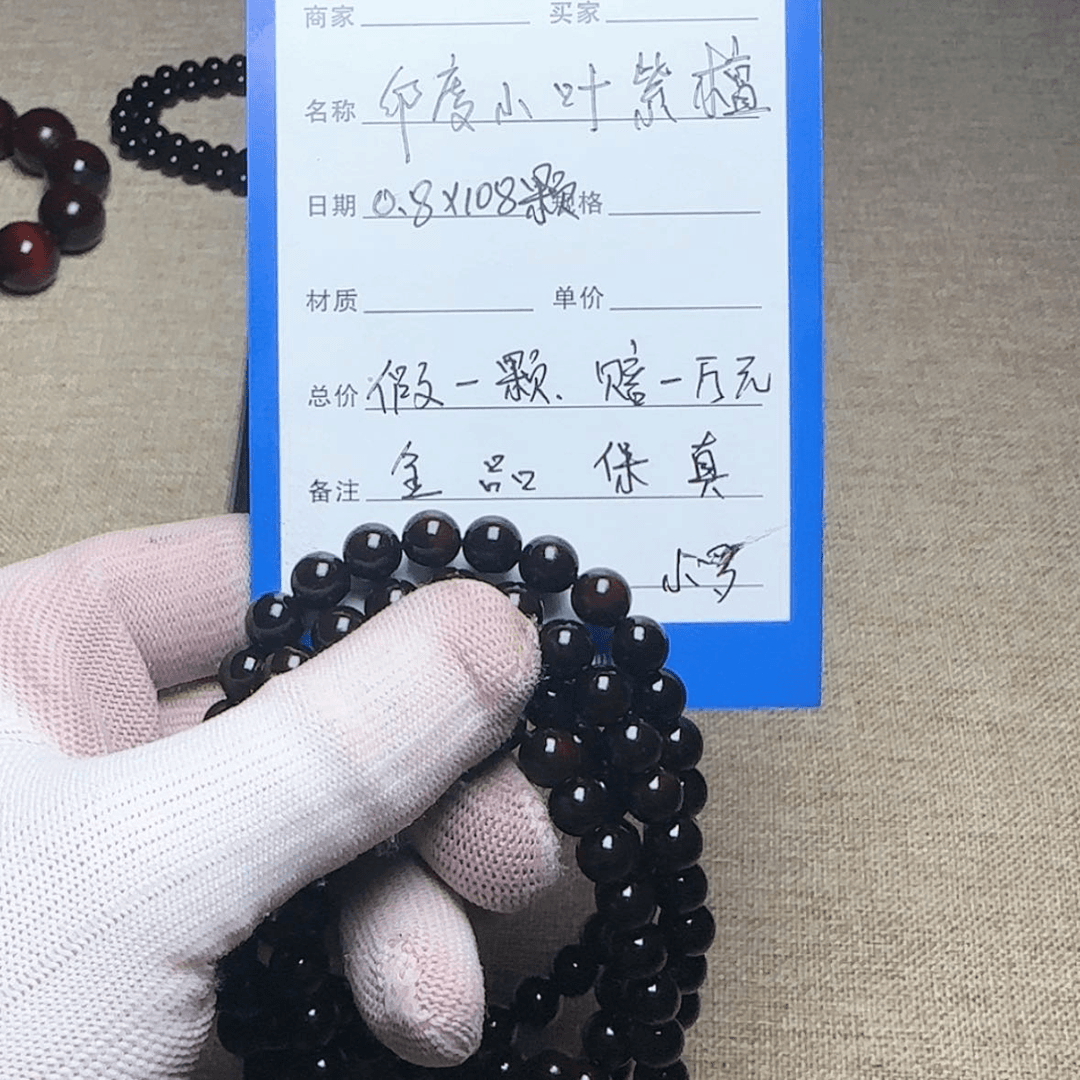 商家 买家
名称 印度小叶紫檀
日期 0.8×108颗 格
材质 单价
总价 假一颗、赔一万元
备注 全品保真
小罗